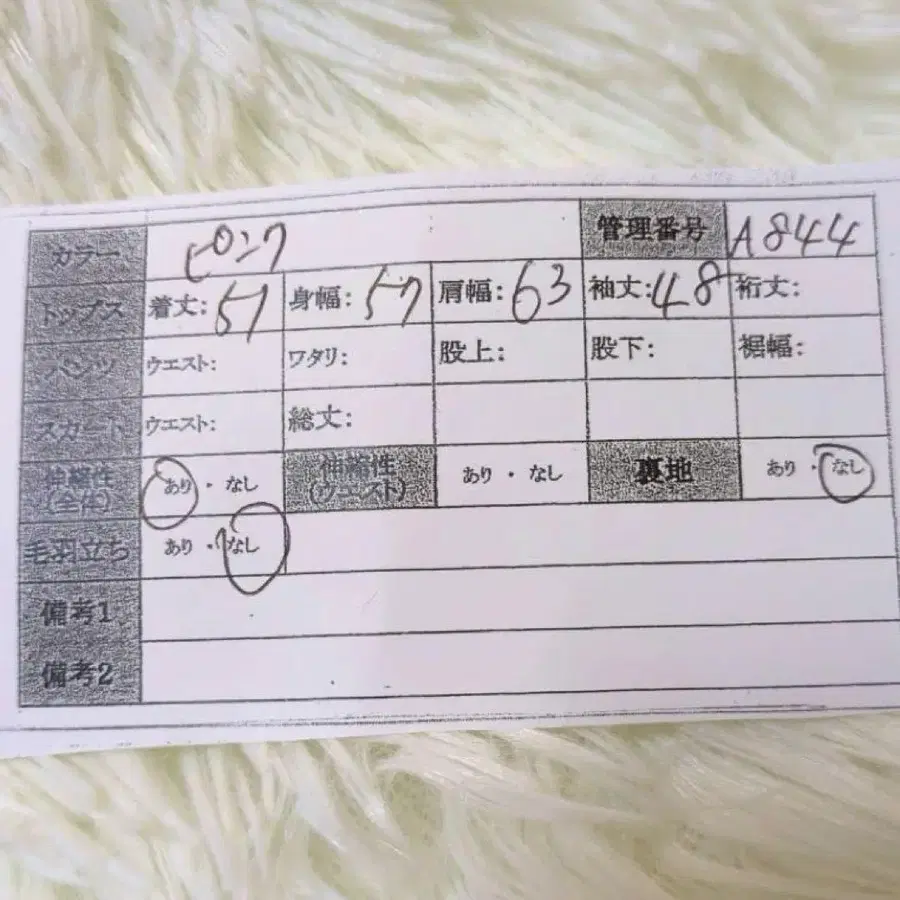 カラー ピンク 管理番号 A844
トップス 着丈: 51 身幅: 57 肩幅: 63 袖丈: 48 裄丈:
パンツ ウエスト: ワタリ: 股上: 股下: 裾幅:
スカート ウエスト: 総丈:
伸縮性 (全体) あり ・ なし 伸縮性 (ウエスト) あり ・ なし 裏地 あり ・ なし
毛羽立ち あり ・ なし
備考1
備考2